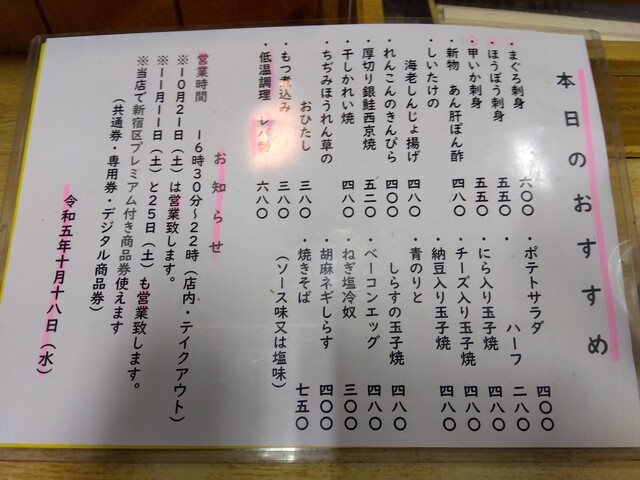 本日のおすすめ
・まぐろ刺身 六〇〇
・ほうぼう刺身 五五〇
・甲いか刺身 五五〇
・新物 あん肝ぽん酢 四八〇
・しいたけの
海老しんじょ揚げ 四八〇
・れんこんのきんぴら 四〇〇
・厚切り銀鮭西京焼 五二〇
・干しかれい焼 四八〇
・ちぢみほうれん草の
おひたし 三八〇
・もつ煮込み 三八〇
・低温調理 レバ刺 六八〇
・ポテトサラダ 四〇〇
・ ハーフ 二八〇
・にら入り玉子焼 四八〇
・チーズ入り玉子焼 四八〇
・納豆入り玉子焼 四八〇
・青のりと
しらすの玉子焼 四八〇
・ベーコンエッグ 四八〇
・ねぎ塩冷奴 三〇〇
・胡麻ネギしらす 四〇〇
・焼きそば 七五〇
(ソース味又は塩味)
お知らせ
営業時間 16時30分~22時(店内・テイクアウト)
※10月21日(土)は営業致します。
※11月11日(土)と25日(土)も営業致します。
※当店で新宿区プレミアム付き商品券使えます
(共通券・専用券・デジタル商品券)
令和五年十月十八日(水)